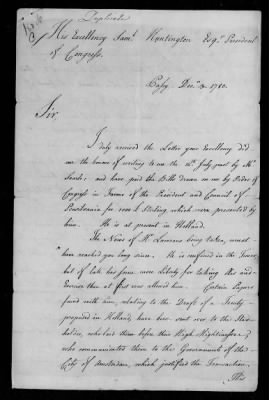 Duplicate
His Excellency Saml. Huntington Esqr. President
of Congress.
Passy Decr. 2. 1780.
Sir
I duly received the Letter your Excellency did
me the honour of writing to me the 12th. July past by Mr
Searle; and have paid the Bills drawn on me by Order of
Congress in Favour of the President and Council of
Pensilvania for 1000 £ Sterling which were presented by
him. He is at present in Holland.
The News of Mr Laurens being taken, must
have reached you long since. He is confined in the Tower
but of late has some more Liberty for taking Air and
Exercise than at first was allowed him. Certain Papers
found with him, relating to the Draft of a Treaty
proposed in Holland, have been sent over to the Stad-
holder, who laid them before their High Mightinesses;
who communicated them to the Government of the
City of Amsterdam, which justified the Transaction.
This